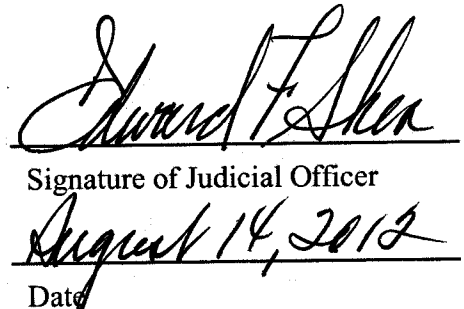 Edward F. Shea
Signature of Judicial Officer
August 14, 2012
Date